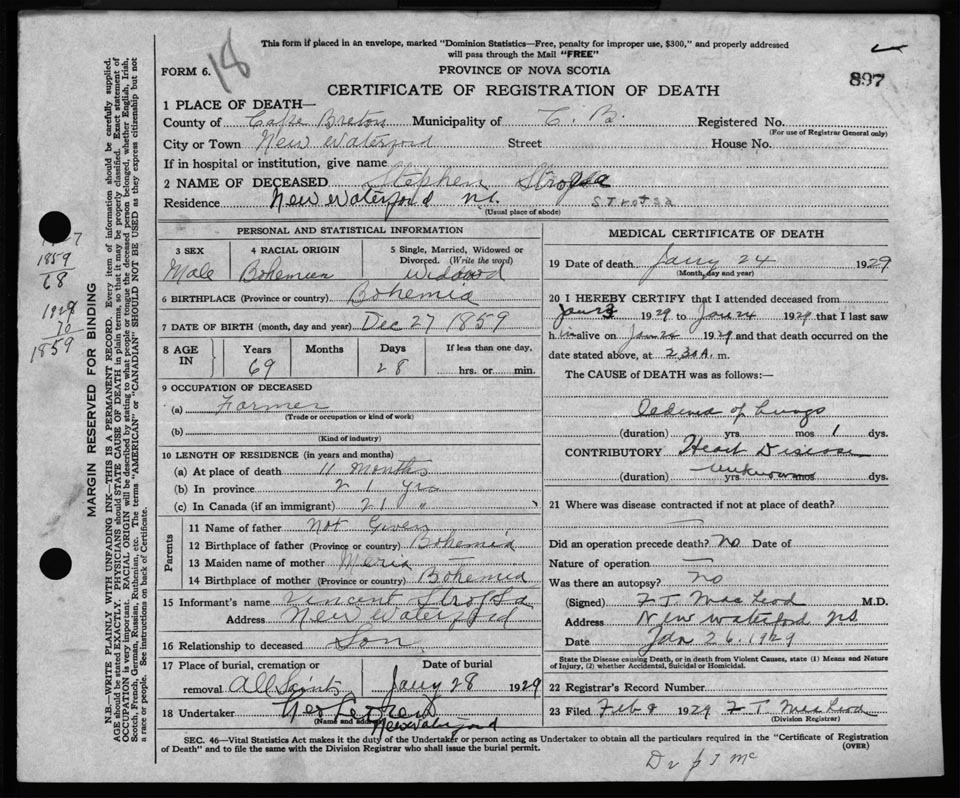 This form if placed in an envelope, marked "Dominion Statistics—Free, penalty for improper use, $300," and properly addressed
will pass through the Mail "FREE"
FORM 6.
18
PROVINCE OF NOVA SCOTIA
897
CERTIFICATE OF REGISTRATION OF DEATH
1 PLACE OF DEATH—
County of Cape Breton Municipality of C. B. Registered No.
(For use of Registrar General only)
City or Town New Waterford Street House No.
If in hospital or institution, give name
2 NAME OF DECEASED Stephen Strofsa
Residence New Waterford N.S. Strofsa
(Usual place of abode)
PERSONAL AND STATISTICAL INFORMATION
3 SEX 4 RACIAL ORIGIN 5 Single, Married, Widowed or
Divorced. (Write the word)
Male Bohemier Widowd
6 BIRTHPLACE (Province or country) Bohemia
7 DATE OF BIRTH (month, day and year) Dec 27 1859
8 AGE IN Years Months Days If less than one day,
69 28 hrs. or min.
9 OCCUPATION OF DECEASED
(a) Farmer
(Trade or occupation or kind of work)
(b)
(Kind of industry)
10 LENGTH OF RESIDENCE (in years and months)
(a) At place of death 11 months
(b) In province 21 yrs
(c) In Canada (if an immigrant) 21 "
Parents
11 Name of father Not Given
12 Birthplace of father (Province or country) Bohemia
13 Maiden name of mother Meria
14 Birthplace of mother (Province or country) Bohemia
15 Informant's name Vincent Strofsa
Address New Waterford
16 Relationship to deceased Son
17 Place of burial, cremation or Date of burial
removal All Saints Jany 28 1929
18 Undertaker
(Name and address) New Waterford
MEDICAL CERTIFICATE OF DEATH
19 Date of death Jany 24 1929
(Month, day and year)
20 I HEREBY CERTIFY that I attended deceased from
Jany 3 1929 to Jan 24 1929 that I last saw
him alive on Jan 24 1929 and that death occurred on the
date stated above, at 2.30 A. m.
The CAUSE of DEATH was as follows:—
Oedema of Lungs
(duration) yrs mos 1 dys.
CONTRIBUTORY Heart Disease
(duration) Unknown yrs mos dys.
21 Where was disease contracted if not at place of death?
—
Did an operation precede death? No Date of
Nature of operation —
Was there an autopsy? No
(Signed) F T MacLeod M.D.
Address New Waterford NS.
Date Jan 26. 1929
State the Disease causing Death, or in death from Violent Causes, state (1) Means and Nature
of Injury, (2) whether Accidental, Suicidal or Homicidal.
22 Registrar's Record Number
23 Filed Feb 8 1929 F T MacLeod
(Division Registrar)
SEC. 46—Vital Statistics Act makes it the duty of the Undertaker or person acting as Undertaker to obtain all the particulars required in the "Certificate of Registration
of Death" and to file the same with the Division Registrar who shall issue the burial permit. (OVER)
MARGIN RESERVED FOR BINDING
N.B.—WRITE PLAINLY WITH UNFADING INK—THIS IS A PERMANENT RECORD. Every item of information should be carefully supplied.
AGE should be stated EXACTLY. PHYSICIANS should STATE CAUSE OF DEATH in plain terms, so that it may be properly classified. Exact statement of
OCCUPATION is very important. RACIAL ORIGIN will be described by stating to what people or tongue the deceased person belonged, whether English, Irish,
Scotch, French, German, Russian, Ruthenian, etc. The terms "AMERICAN" or "CANADIAN" SHOULD NOT BE USED as they express citizenship but not
a race or people. See instructions on back of Certificate.
1859
68
1929
70
1859